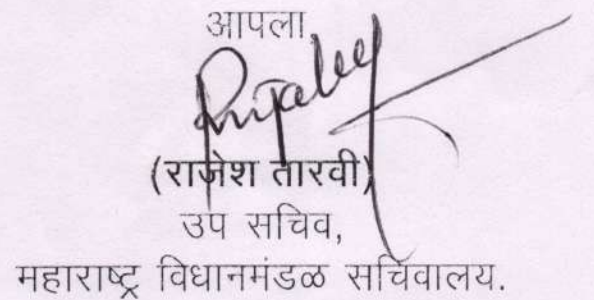 आपला,
(राजेश तारवी)
उप सचिव,
महाराष्ट्र विधानमंडळ सचिवालय.